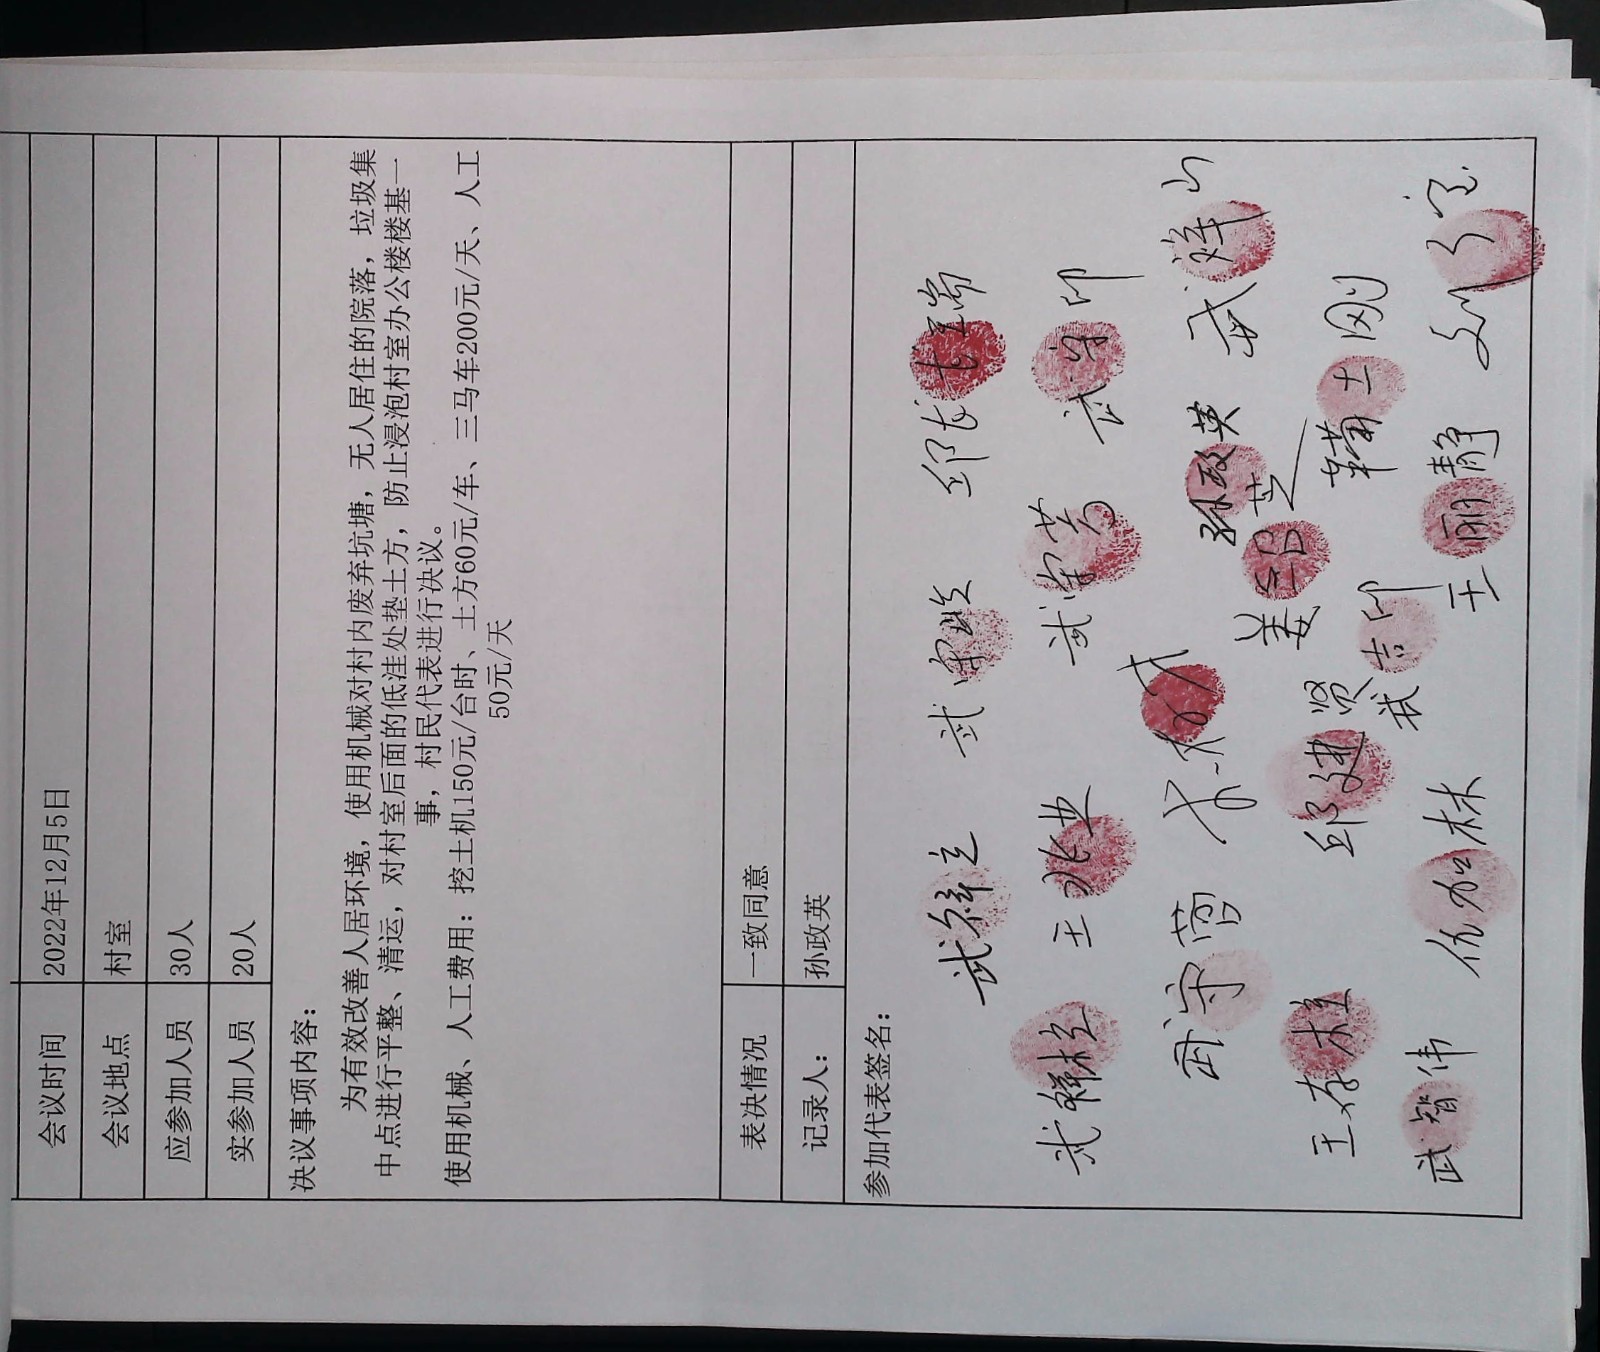 会议时间 2022年12月5日
会议地点 村室
应参加人员 30人
实参加人员 20人
决议事项内容：
为有效改善人居环境，使用机械对村内废弃坑塘，无人居住的院落，垃圾集
中点进行平整、清运，对村室后面的低洼处垫土方，防止浸泡村室办公楼楼基一
事，村民代表进行决议。
使用机械、人工费用：挖土机150元/台时、土方60元/车、三马车200元/天、人工
50元/天
表决情况 一致同意
记录人： 孙政英
参加代表签名：
武祥立
武祥栓 王兆业 武守印
武守营 孙政英 武祥山
王存柱 邱建贤
武智伟 武吉印 王丽静